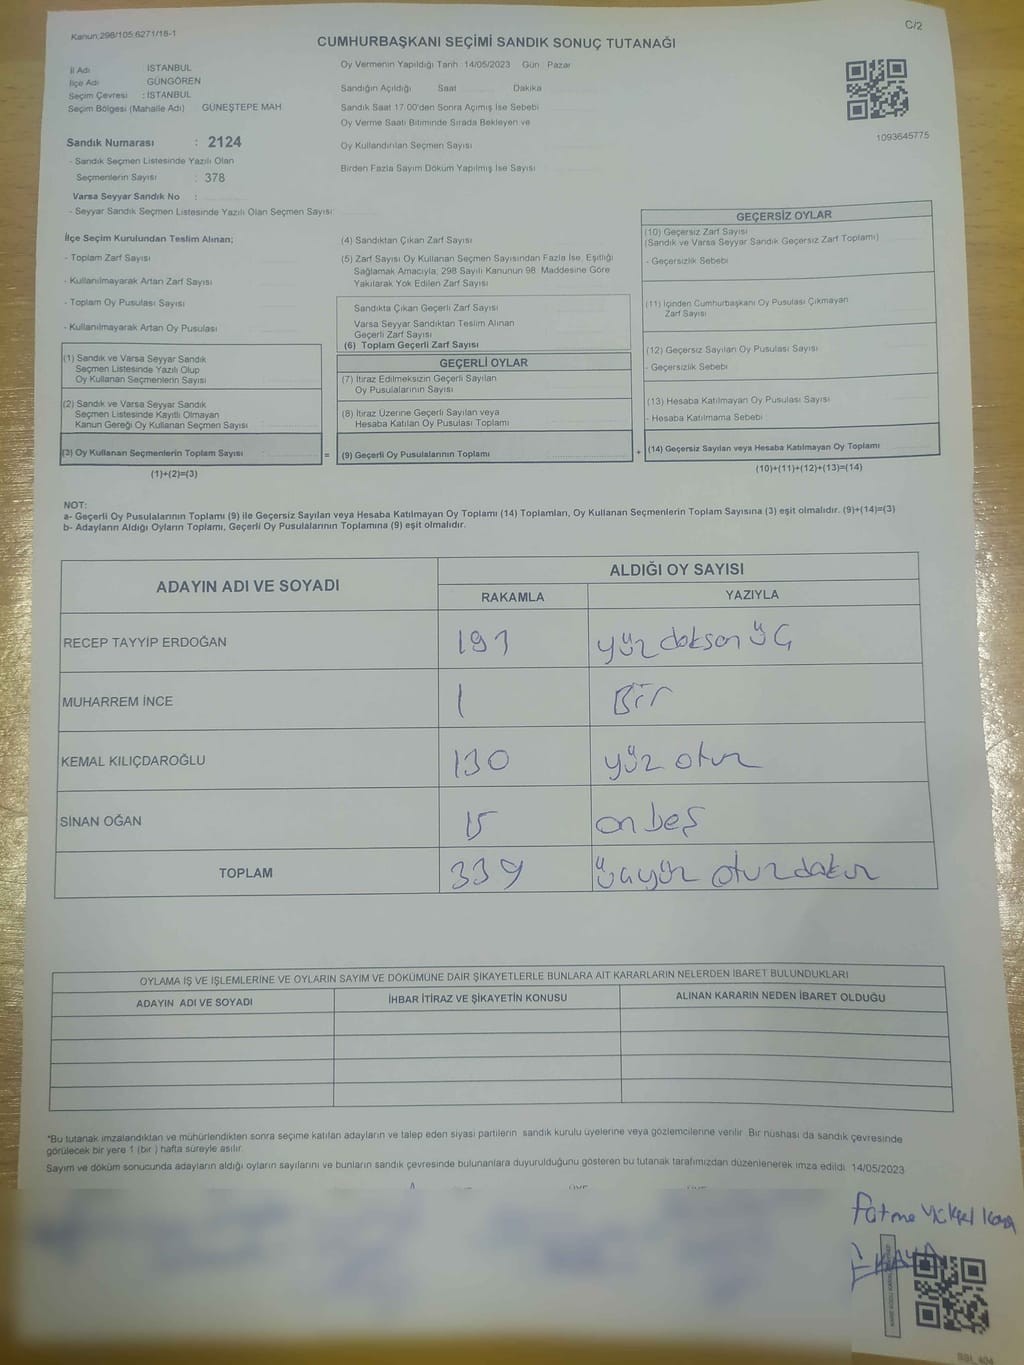 Kanun;298/105;6271/18-1
C/2
CUMHURBAŞKANI SEÇİMİ SANDIK SONUÇ TUTANAĞI
İl Adı İSTANBUL
İlçe Adı GÜNGÖREN
Seçim Çevresi : İSTANBUL
Seçim Bölgesi (Mahalle Adı) GÜNEŞTEPE MAH
Sandık Numarası : 2124
- Sandık Seçmen Listesinde Yazılı Olan
Seçmenlerin Sayısı : 378
Varsa Seyyar Sandık No :
- Seyyar Sandık Seçmen Listesinde Yazılı Olan Seçmen Sayısı
Oy Vermenin Yapıldığı Tarih 14/05/2023 Gün : Pazar
Sandığın Açıldığı Saat Dakika
Sandık Saat 17.00'den Sonra Açımış İse Sebebi
Oy Verme Saati Bitiminde Sırada Bekleyen ve
Oy Kullandırılan Seçmen Sayısı
Birden Fazla Sayım Döküm Yapılmış İse Sayısı
1093645775
İlçe Seçim Kurulundan Teslim Alınan;
- Toplam Zarf Sayısı
- Kullanılmayarak Artan Zarf Sayısı
- Toplam Oy Pusulası Sayısı
- Kullanılmayarak Artan Oy Pusulası
(1) Sandık ve Varsa Seyyar Sandık
Seçmen Listesinde Yazılı Olup
Oy Kullanan Seçmenlerin Sayısı
(2) Sandık ve Varsa Seyyar Sandık
Seçmen Listesinde Kayıtlı Olmayan
Kanun Gereği Oy Kullanan Seçmen Sayısı
(3) Oy Kullanan Seçmenlerin Toplam Sayısı
(1)+(2)=(3)
(4) Sandıktan Çıkan Zarf Sayısı
(5) Zarf Sayısı Oy Kullanan Seçmen Sayısından Fazla İse, Eşitliği
Sağlamak Amacıyla, 298 Sayılı Kanunun 98. Maddesine Göre
Yakılarak Yok Edilen Zarf Sayısı
Sandıkta Çıkan Geçerli Zarf Sayısı
Varsa Seyyar Sandıktan Teslim Alınan
Geçerli Zarf Sayısı
(6) Toplam Geçerli Zarf Sayısı
GEÇERLİ OYLAR
(7) İtiraz Edilmeksizin Geçerli Sayılan
Oy Pusulalarının Sayısı
(8) İtiraz Üzerine Geçerli Sayılan veya
Hesaba Katılan Oy Pusulası Toplamı
= (9) Geçerli Oy Pusulalarının Toplamı
GEÇERSİZ OYLAR
(10) Geçersiz Zarf Sayısı
(Sandık ve Varsa Seyyar Sandık Geçersiz Zarf Toplamı)
- Geçersizlik Sebebi
(11) İçinden Cumhurbaşkanı Oy Pusulası Çıkmayan
Zarf Sayısı
(12) Geçersiz Sayılan Oy Pusulası Sayısı
- Geçersizlik Sebebi
(13) Hesaba Katılmayan Oy Pusulası Sayısı
- Hesaba Katılmama Sebebi
+ (14) Geçersiz Sayılan veya Hesaba Katılmayan Oy Toplamı
(10)+(11)+(12)+(13)=(14)
NOT:
a- Geçerli Oy Pusulalarının Toplamı (9) ile Geçersiz Sayılan veya Hesaba Katılmayan Oy Toplamı (14) Toplamları, Oy Kullanan Seçmenlerin Toplam Sayısına (3) eşit olmalıdır. (9)+(14)=(3)
b- Adayların Aldığı Oyların Toplamı, Geçerli Oy Pusulalarının Toplamına (9) eşit olmalıdır.
ADAYIN ADI VE SOYADI ALDIĞI OY SAYISI
RAKAMLA YAZIYLA
RECEP TAYYİP ERDOĞAN 193 yüz doksan üç
MUHARREM İNCE 1 Bir
KEMAL KILIÇDAROĞLU 130 yüz otuz
SİNAN OĞAN 15 on beş
TOPLAM 339 üçyüz otuzdokuz
OYLAMA İŞ VE İŞLEMLERİNE VE OYLARIN SAYIM VE DÖKÜMÜNE DAİR ŞİKAYETLERLE BUNLARA AİT KARARLARIN NELERDEN İBARET BULUNDUKLARI
ADAYIN ADI VE SOYADI İHBAR İTİRAZ VE ŞİKAYETİN KONUSU ALINAN KARARIN NEDEN İBARET OLDUĞU
*Bu tutanak imzalandıktan ve mühürlendikten sonra seçime katılan adayların ve talep eden siyasi partilerin sandık kurulu üyelerine veya gözlemcilerine verilir. Bir nüshası da sandık çevresinde
görülecek bir yere 1 (bir) hafta süreyle asılır.
Sayım ve döküm sonucunda adayların aldığı oyların sayılarını ve bunların sandık çevresinde bulunanlara duyurulduğunu gösteren bu tutanak tarafımızdan düzenlenerek imza edildi. 14/05/2023
Fatma